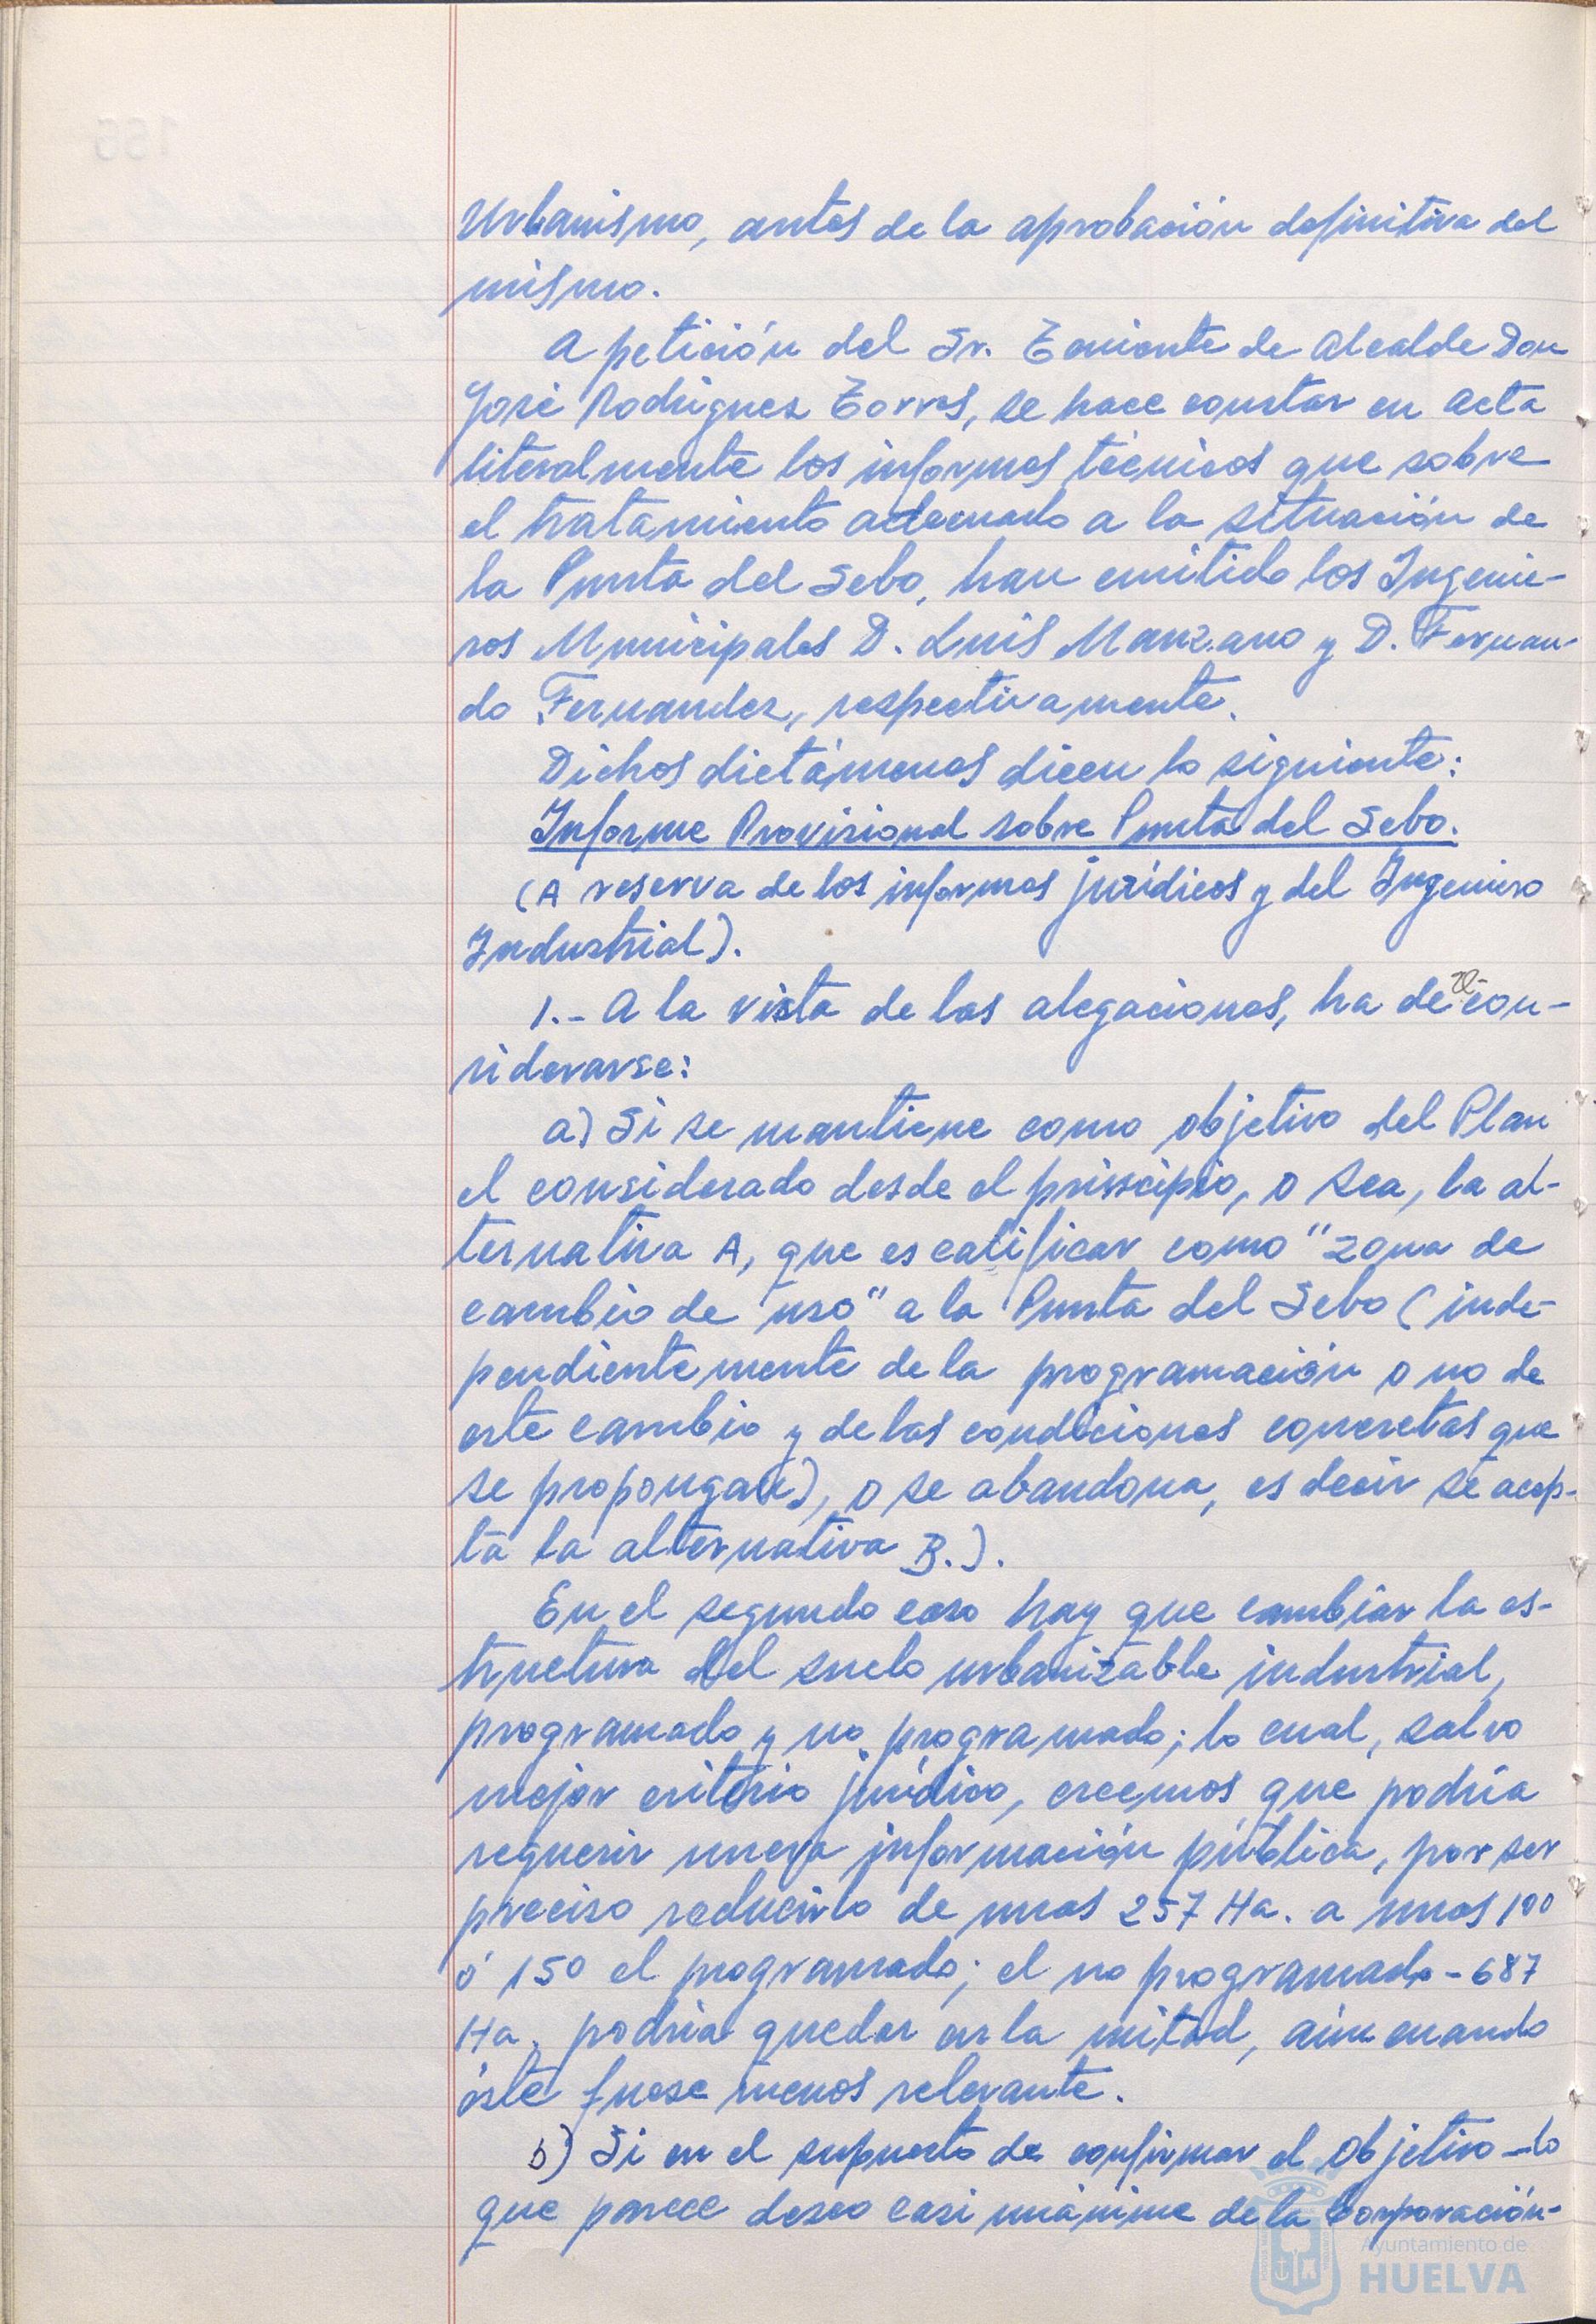 Urbanismo, antes de la aprobación definitiva del
mismo.
A petición del Sr. Teniente de Alcalde Don
José Rodríguez Torres, se hace constar en acta
literalmente los informes técnicos que sobre
el tratamiento adecuado a la situación de
la Punta del Sebo, han emitido los Ingenie-
ros Municipales D. Luis Manzano y D. Fernan-
do Fernandez, respectivamente.
Dichos dictámenes dicen lo siguiente:
Informe Provisional sobre Punta del Sebo.
(A reserva de los informes jurídicos y del Ingeniero
Industrial).
1.- A la vista de las alegaciones, ha de re-con-
siderarse:
a) Si se mantiene como objetivo del Plan
el considerado desde el principio, o sea, la al-
ternativa A, que es calificar como "zona de
cambio de uso" a la Punta del Sebo (inde-
pendientemente de la programación o no de
este cambio y de las condiciones concretas que
se propongan), o se abandona, es decir se acep-
ta la alternativa B.).
En el segundo caso hay que cambiar la es-
tructura del suelo urbanizable industrial,
programado y no programado; lo cual, salvo
mejor criterio jurídico, creemos que podría
requerir nueva información pública, por ser
preciso reducirlo de unas 257 Ha. a unos 100
ó 150 el programado; el no programado - 687
Ha, podria quedar en la mitad, aún cuando
éste fuese menos relevante.
b) Si en el supuesto de confirmar el objetivo - lo
que parece deseo casi unánime de la Corporación-
Ayuntamiento de
HUELVA